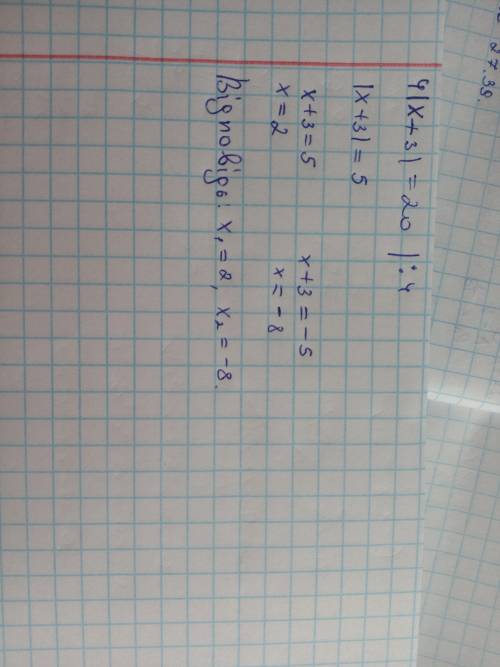 27.38.
4|x+3| = 20 |:4
|x+3| = 5
x+3=5 x+3=-5
x=2 x=-8
Відповідь: x₁=2, x₂=-8.